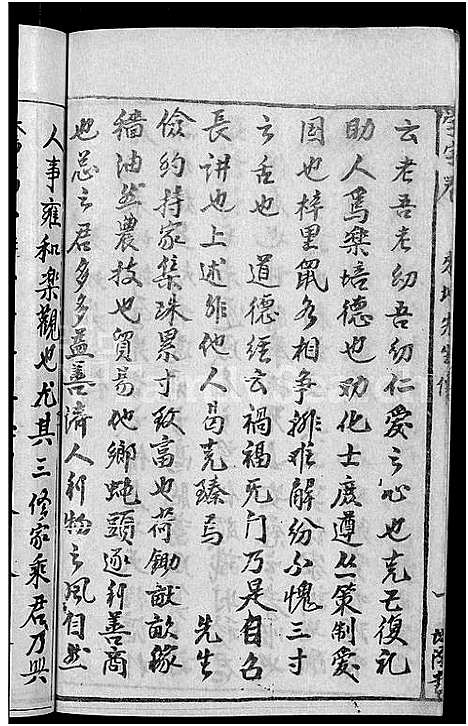 云老吾老幼吾幼仁爱之心也克己復礼
助人為樂培德也劝化士庶遵从策制爱
国也梓里鼠各相争排难解纷不愧三寸
之舌也　道德經云禍福旡门乃是自召
長讲也上述非他人曷克臻焉　先生
俭约持家集珠累寸致富也荷锄畝畝稼
穡油然農技也贸易他鄉蝇頭逐利善商
也总云君多多益善濟人利物之风自然
人事雍和樂觀也尤其三修家乘君乃興